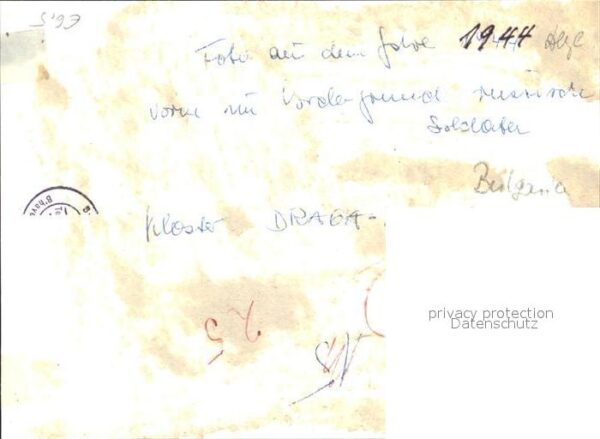 Foto aus dem Jahre 1944
vorne im Vordergrund russische
Soldaten
Bulgaria
Kloster DRAGA-
privacy protection
Datenschutz